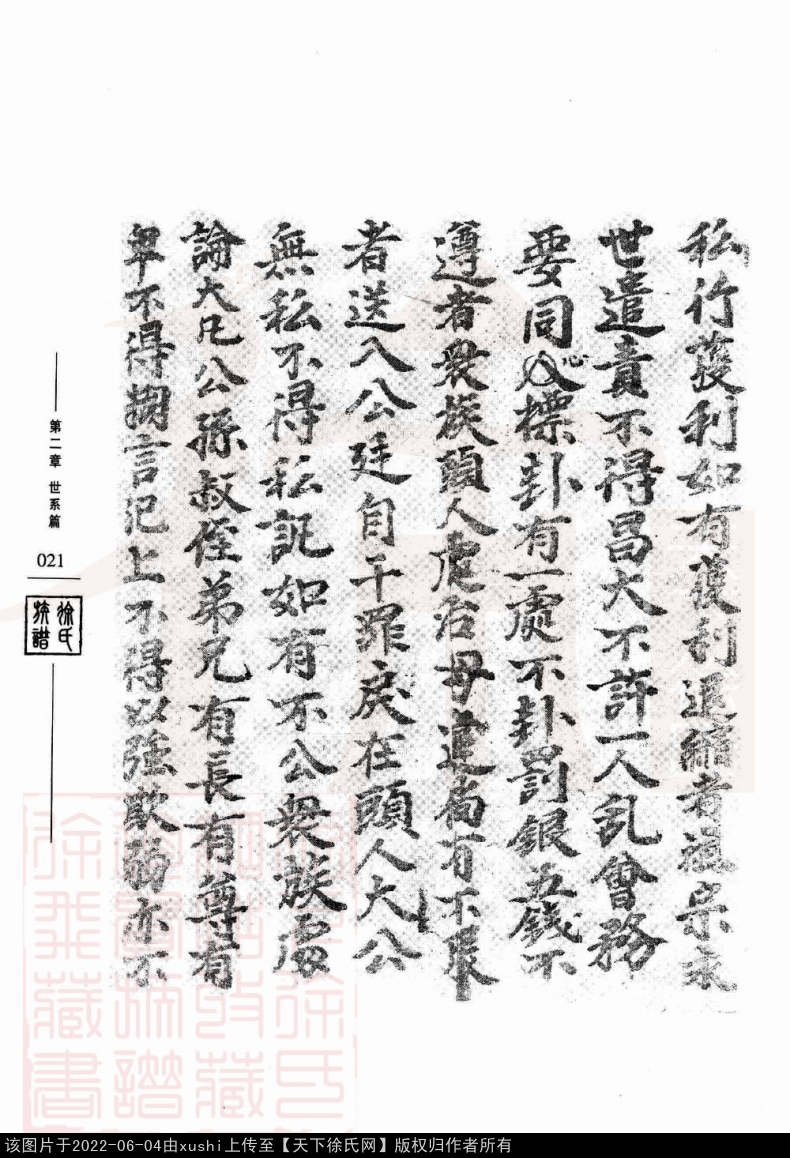 私行獲利如有獲利退縮者祖宗永
世遣責不得昌大不許一人乱曾務
要同心標卦有一處不卦罰銀五錢不
遵者衆族頭人處治毋違倘有不服
者送入公廷自干罪戾在頭人大公
無私不得私訊如有不公衆族處
論大凡公孫叔侄弟兄有長有尊有
卑不得搠言犯上不得以強欺弱亦不
第二章 世系篇
021
徐氏
族譜
该图片于2022-06-04由xushi上传至【天下徐氏网】版权归作者所有